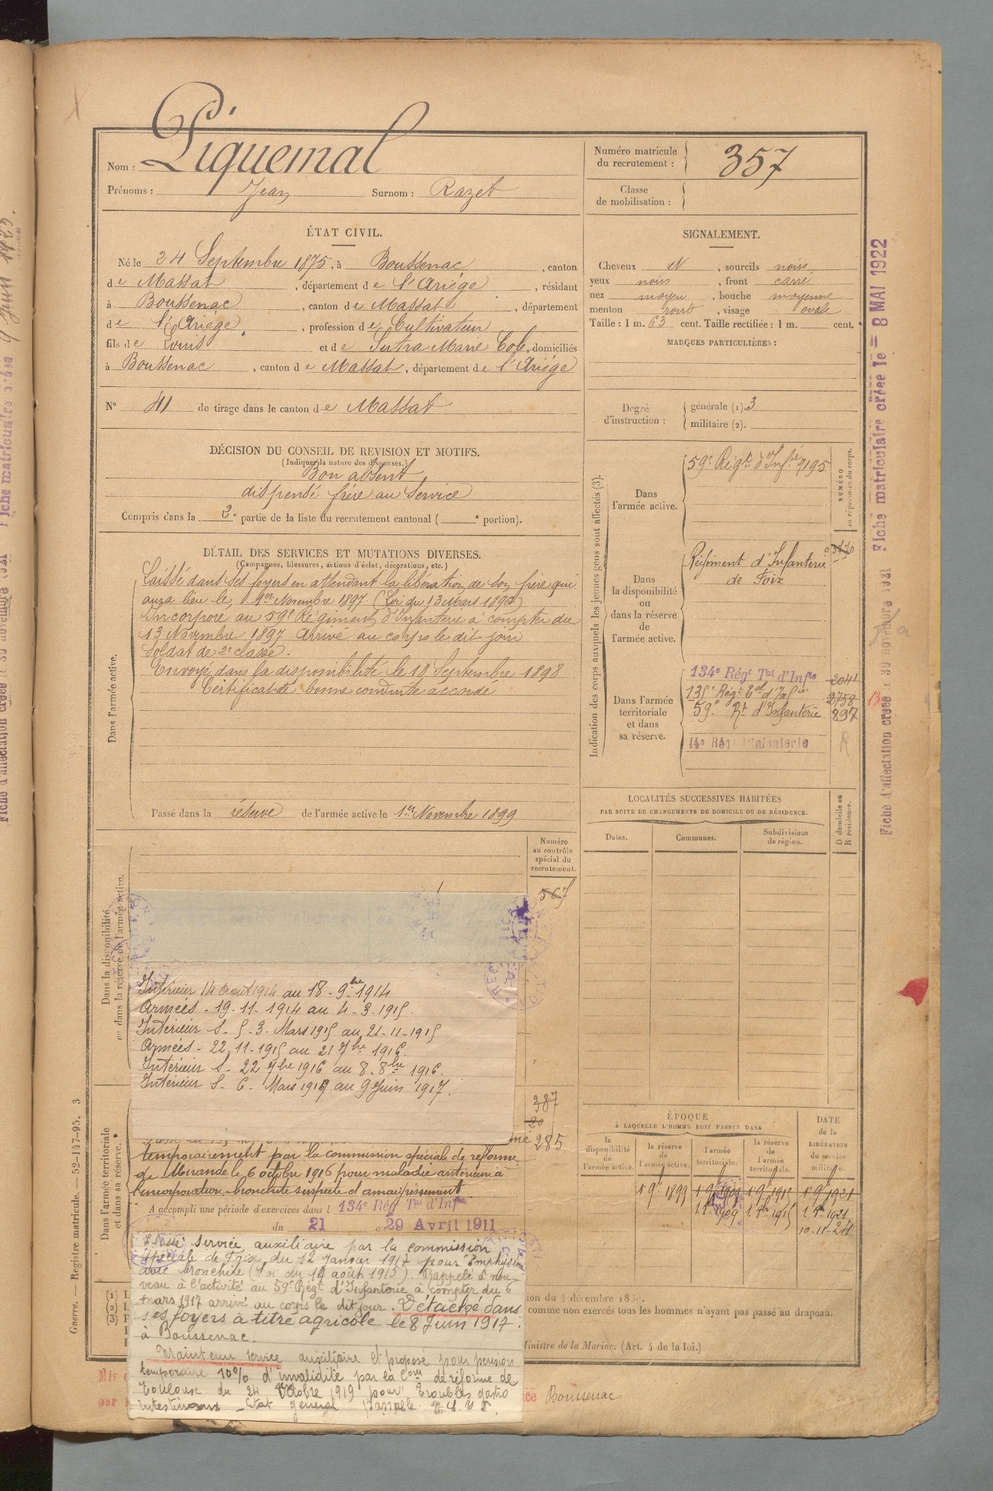 Nom : Piquemal
Prénoms : Jean Surnom : Razet
Numéro matricule du recrutement : 357
Classe de mobilisation :
ÉTAT CIVIL.
Né le 24 Septembre 1875, à Boussenac, canton
de Massat, département de l'Ariège, résidant
à Boussenac, canton de Massat, département
de l'Ariège, profession de Cultivateur
fils de Louis et de Sutra Marie, domiciliés
à Boussenac, canton de Massat, département de l'Ariège
N° 41 de tirage dans le canton de Massat
SIGNALEMENT.
Cheveux N, sourcils noirs
yeux noirs, front carré
nez moyen, bouche moyenne
menton rond, visage ovale
Taille : 1 m. 63 cent. Taille rectifiée : 1 m. cent.
MARQUES PARTICULIÈRES :
Degré d'instruction : générale (1). 3
militaire (2).
DÉCISION DU CONSEIL DE REVISION ET MOTIFS.
(Indiquer la nature des dispenses.)
Bon absent
dispensé frère au service
Compris dans la 3e partie de la liste du recrutement cantonal ( e portion).
DÉTAIL DES SERVICES ET MUTATIONS DIVERSES.
(Campagnes, blessures, actions d'éclat, décorations, etc.)
Dans l'armée active.
Laissé dans ses foyers en attendant la libération de son frère qui
aura lieu le 1er Novembre 1897 (Loi du 13 Mars 1896)
Incorporé au 59e Régiment d'Infanterie à compter du
13 Novembre 1897 Arrivé au corps le dit jour
Soldat de 2e classe.
Envoyé dans la disponibilité le 18 Septembre 1898
Certificat de bonne conduite accordé
Passé dans la réserve de l'armée active le 1er Novembre 1899
Indication des corps auxquels les jeunes gens sont affectés (3).
NUMÉRO
Dans l'armée active.
59e Régt d'Infie 7195
Dans la disponibilité ou dans la réserve de l'armée active.
Régiment d'Infanterie
de Foix
Dans l'armée territoriale et dans sa réserve.
134e Régt Tal d'Infie 2041
135e Régt Tal d'Infie 2758 13
59e Rt d'Infanterie 897
14e Régt d'Infanterie
R
LOCALITÉS SUCCESSIVES HABITÉES
PAR SUITE DE CHANGEMENTS DE DOMICILE OU DE RÉSIDENCE.
Dates. Communes. Subdivisions de région.
D domicile ou R résidence.
Numéro
au contrôle
spécial du
recrutement.
567
Dans la disponibilité
ou dans la réserve de l'armée active.
Intérieur 14 août 1914 au 18 - 9bre 1914
Armées - 19-11-1914 au 4-3-1915
Intérieur S - 5-3. Mars 1915 au 21-11-1915
Armées - 22-11-1915 au 21 7bre 1916.
Intérieur S - 22 7bre 1916 au 8. 8bre 1916.
Intérieur S - 6. Mars 1917 au 9 Juin 1917.
387
20
285
Dans l'armée territoriale
et dans sa réserve.
temporairement par la commission spéciale de réforme
de Mirande le 6 octobre 1916 pour maladie antérieure à
l'incorporation, bronchite suspecte et amaigrissement
A accompli une période d'exercices dans l 134e Régt Tal d'Infie
du 21 29 Avril 1911
Classé service auxiliaire par la commission
spéciale de Foix du 12 Janvier 1917 pour Emphysème
avec bronchite (Loi du 17 août 1915). Rappelé à nou-
veau à l'activité au 59e Régt d'Infanterie à compter du 6
mars 1917 arrivé au corps le dit jour. Détaché dans
ses foyers à titre agricole le 8 Juin 1917.
à Boussenac.
Maintenu service auxiliaire et proposé pour pension
temporaire 10% d'invalidité par la Con de réforme de
Toulouse du 24 Octobre 1919 pour Troubles gastro
intestinaux - Etat général
ÉPOQUE
À LAQUELLE L'HOMME DOIT PASSER DANS
la disponibilité de l'armée active.
la réserve de l'armée active.
l'armée territoriale.
la réserve de l'armée territoriale.
DATE de la LIBÉRATION du service militaire.
1 9e 1899 1 9e 1909 1 9e 1915 1 9e 1921
10-11-24
(1)
(2)
(3)
comme non exercés tous les hommes n'ayant pas passé au drapeau.
Ministre de la Marine. (Art. 4 de la loi.)
Boussenac
Guerre. — Registre matricule. — 52-147-95. 3
Fiche matriculaire créée le 8 MAI 1922
Fiche d'affectation créée le 30 novembre 1921